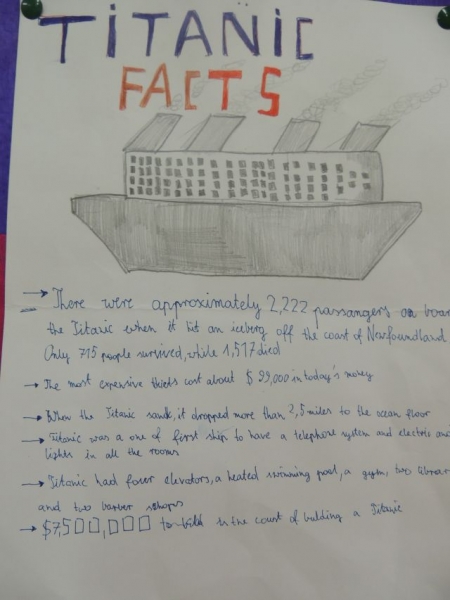 TITANIC
FACTS
→ There were approximately 2,222 passangers on boar
the Titanic when it hit an iceberg off the coast of Newfoundland
Only 715 people survived, while 1,517 died
→ The most expensive tickets cost about $ 99,000 in today's money
→ When the Titanic sank, it dropped more than 2,5 miles to the ocean floor
→ Titanic was a one of first ship to have a telephone system and electric and
lights in all the rooms
→ Titanic had four elevators, a heated swimming pool, a gym, two librar
and two barber schops
→ $7,500,000 to the coust of bulding a Titanic